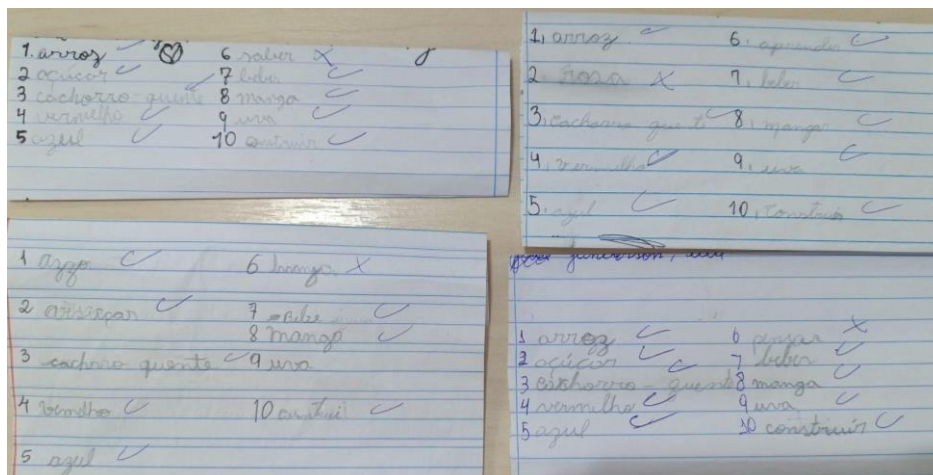 1. arroz
2 açúcar
3 cachorro-quente
4 vermelho
5 azul
6 saber
7 beber
8 manga
9 uva
10 construir
1. arroz
2. rosa
3. cachorro quente
4. vermelho
5. azul
6. aprender
7. beber
8. manga
9. uva
10. construir
1
2
3 cachorro quente
4
5 azul
6 manga
7 Bebe
8 manga
9 uva
10
1 arroz
2 açúcar
3 cachorro-quente
4 vermelho
5 azul
6 pensar
7 beber
8 manga
9 uva
10 construir